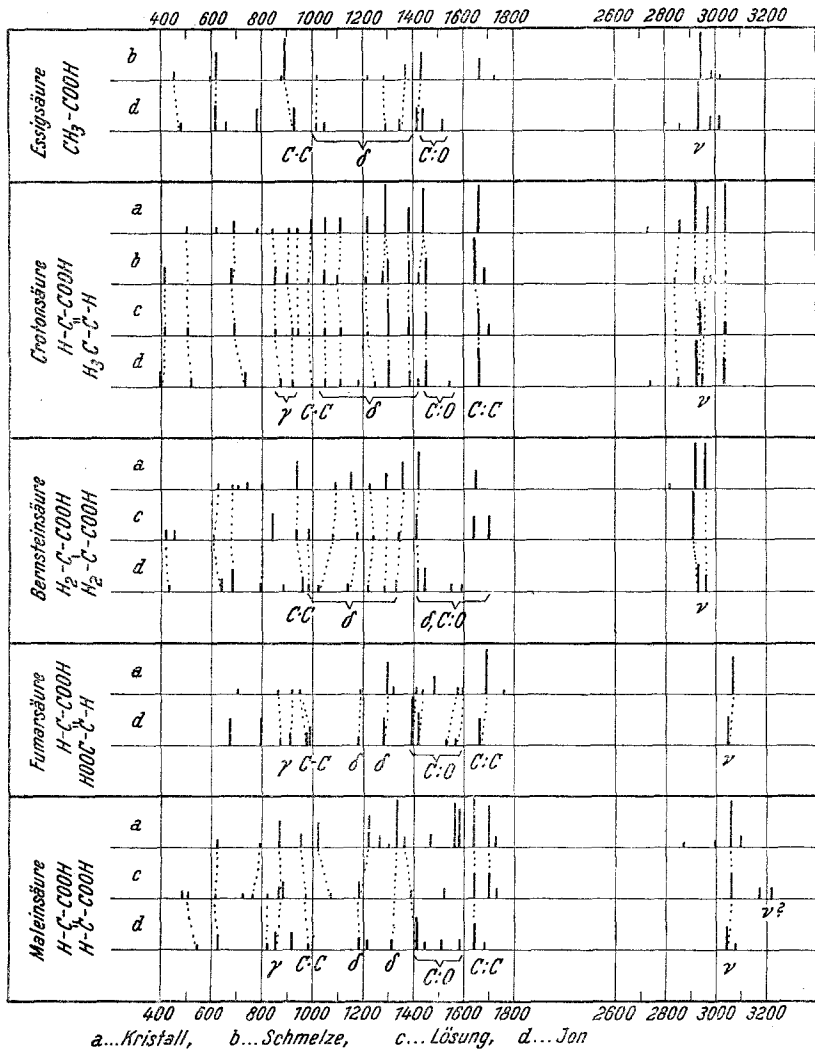 400 600 800 1000 1200 1400 1600 1800 2600 2800 3000 3200
Essigsäure
CH3-COOH
b
d
C·C δ C:O ν
Crotonsäure
H-C-COOH
H3C-C-H
a
b
c
d
γ C·C δ C:O C:C ν
Bernsteinsäure
H2-C-COOH
H2-C-COOH
a
c
d
C·C δ δ, C:O ν
Fumarsäure
H-C-COOH
HOOC-C-H
a
d
γ C-C δ δ C:O C:C ν
Maleinsäure
H-C-COOH
H-C-COOH
a
c
ν?
d
γ C-C δ δ C:O C:C ν
400 600 800 1000 1200 1400 1600 1800 2600 2800 3000 3200
a...Kristall, b...Schmelze, c...Lösung, d...Jon